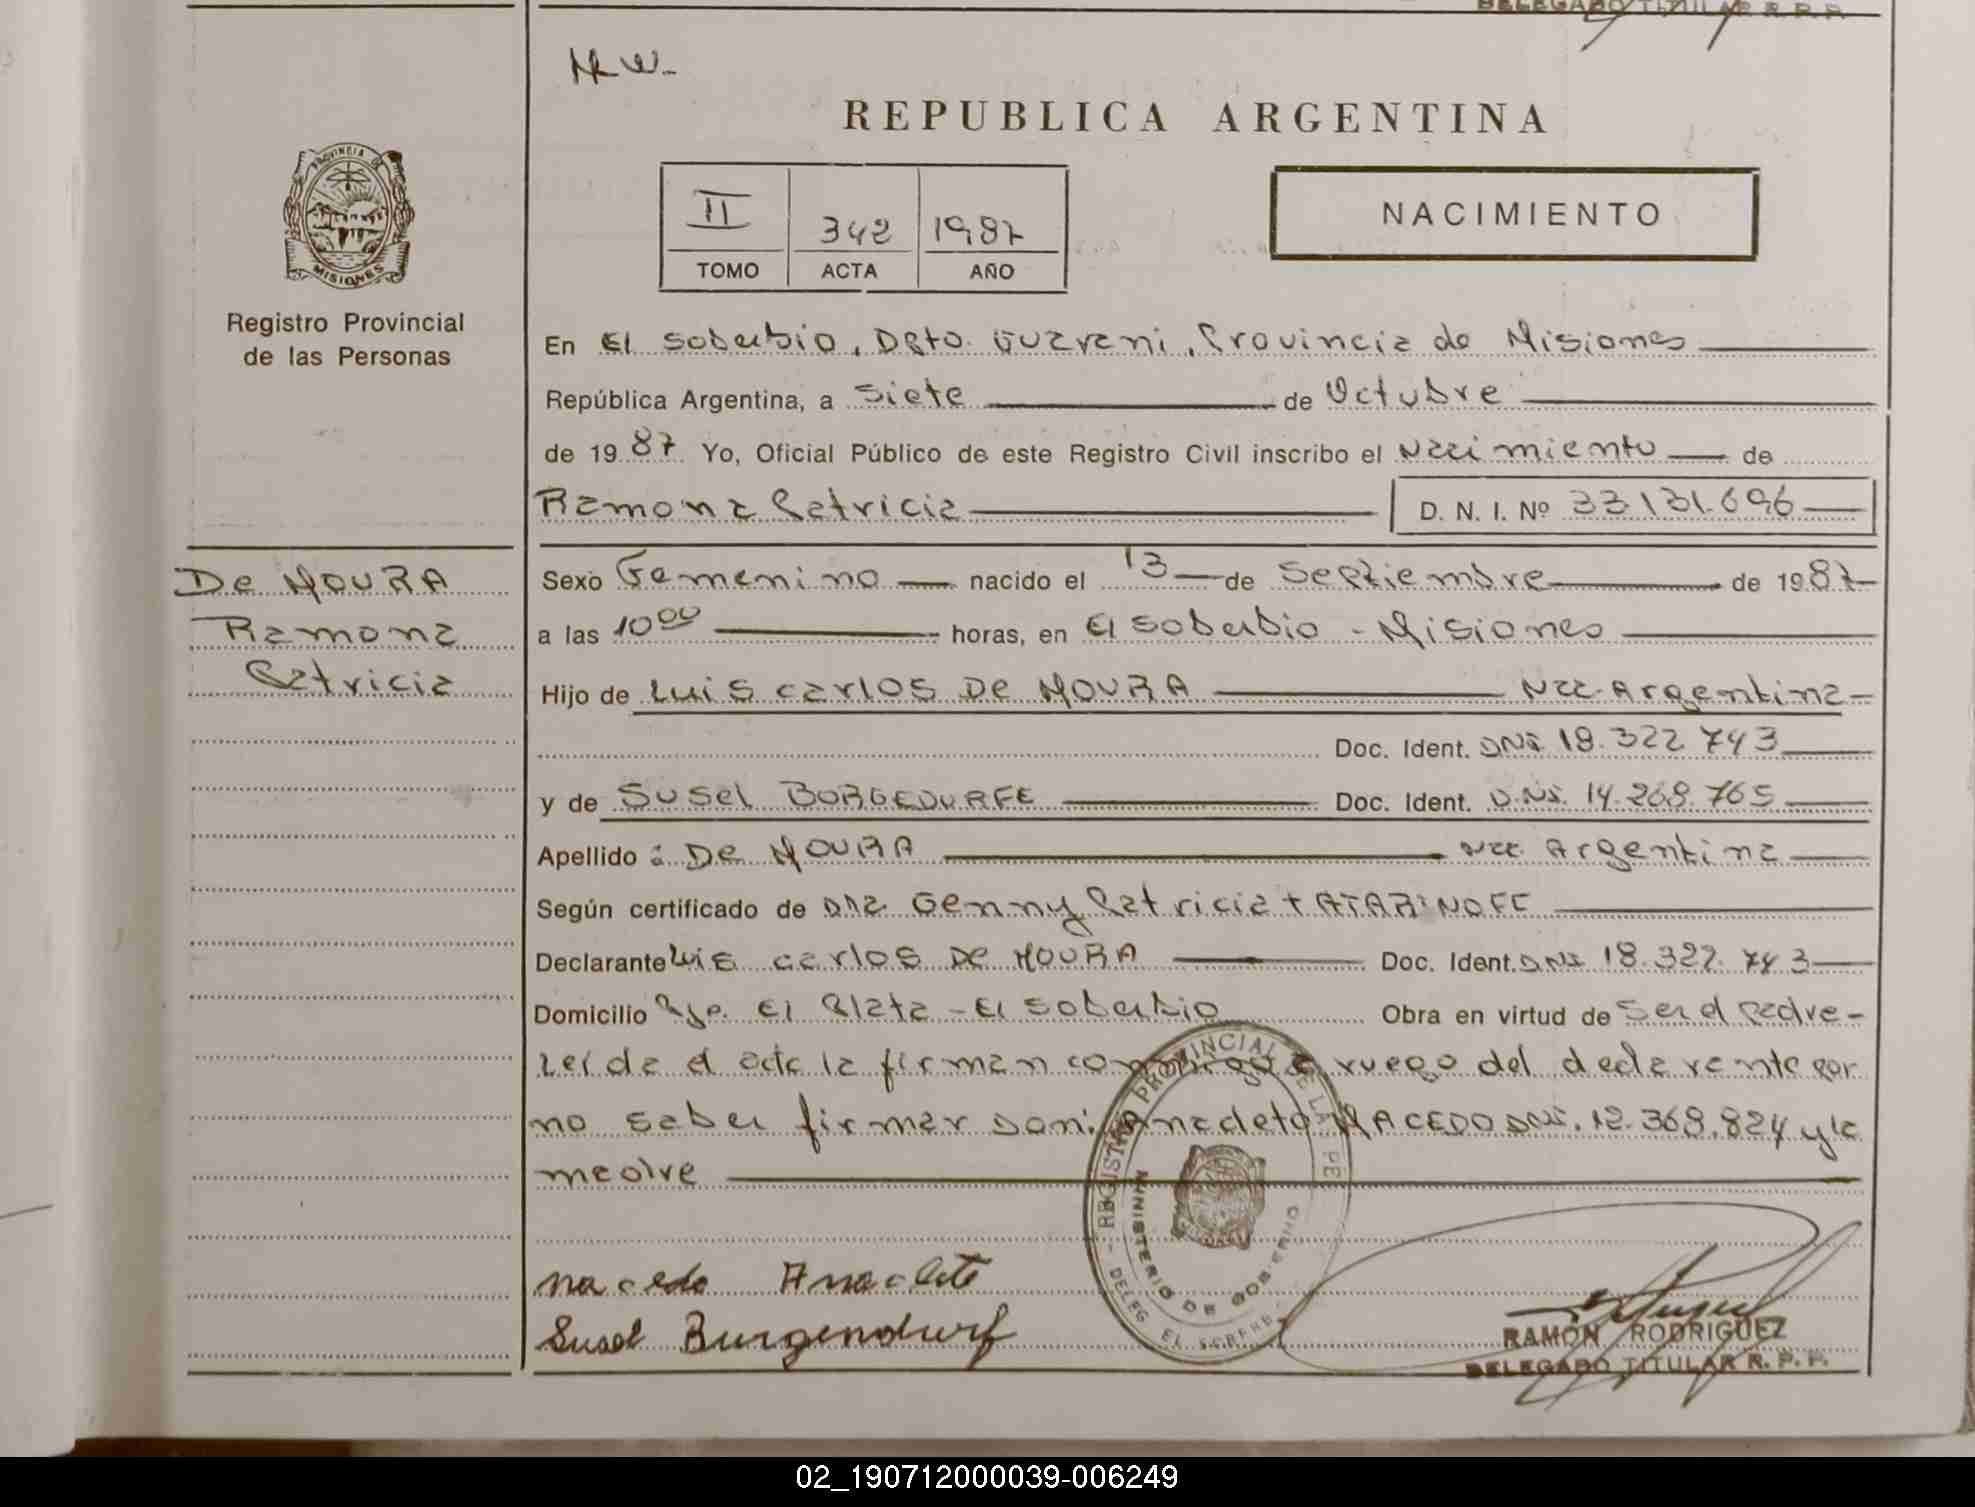 DELEGADO TITULAR R. P. P.
REPUBLICA ARGENTINA
PROVINCIA DE
MISIONES
Registro Provincial
de las Personas
II 342 1987
TOMO ACTA AÑO
NACIMIENTO
En El Soberbio, Dpto. Guarani, Provincia de Misiones
República Argentina, a Siete de Octubre
de 1987 Yo, Oficial Público de este Registro Civil inscribo el Nacimiento de
Ramona Patricia D. N. I. Nº 33.131.696
De MOURA
Ramona
Patricia
Sexo Femenino nacido el 13 de Septiembre de 1987
a las 10 00 horas, en El Soberbio - Misiones
Hijo de Luis Carlos De MOURA Nac. Argentina
Doc. Ident. DNI. 18.322.743
y de Susel BORGEDURFE Doc. Ident. D.NI. 14.268.765
Apellido : De MOURA Nac. Argentina
Según certificado de Dra Genny Patricia TATARINOFF
Declarante Luis Carlos De MOURA Doc. Ident. DNI 18.322.743
Domicilio Pje. El Plata - El Soberbio Obra en virtud de Ser el padre-
Leída el acta la firman conmigo a ruego del declarante por
no saber firmar Don: Anacleto MACEDO DNI. 12.368.824 y la
madre
Macedo Anacleto
Susel Burgendurf
REGISTRO PROVINCIAL DE LAS PE
MINISTERIO DE GOBIERNO
DELEG EL SOBERB
RAMÓN RODRIGUEZ
DELEGADO TITULAR R. P. P.
02_190712000039-006249